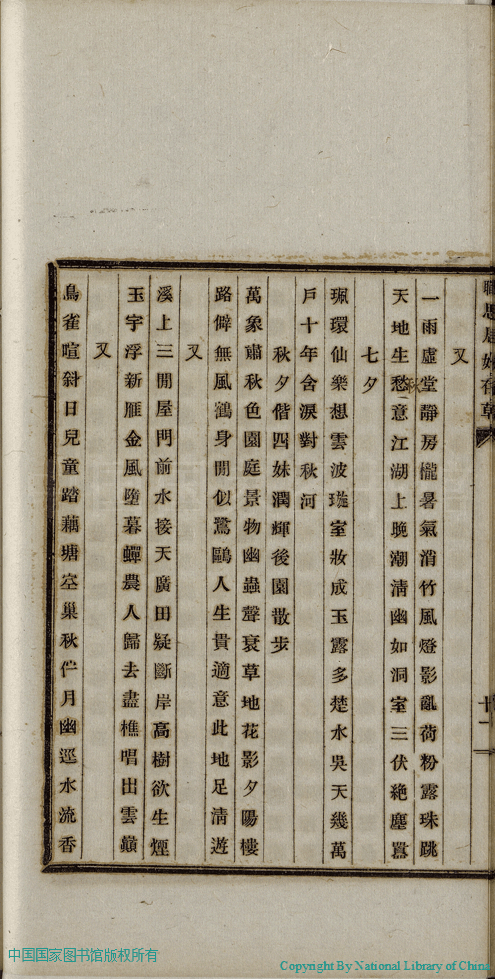 職思居姑存草
十二
又
一雨虛堂靜房櫳暑氣消竹風燈影亂荷粉露珠跳
天地生愁意江湖上晚潮淸幽如洞室三伏絶塵囂
秋
七夕
珮環仙樂想雲波璇室妝成玉露多楚水吳天幾萬
戶十年含淚對秋河
秋夕偕四妹潤輝後園散步
萬象肅秋色園庭景物幽蟲聲衰草地花影夕陽樓
路僻無風鶴身閒似鷺鷗人生貴適意此地足淸遊
又
溪上三閒屋門前水接天廣田疑斷岸高樹欲生煙
玉宇浮新雁金風墮暮蟬農人歸去盡樵唱出雲巔
又
鳥雀喧斜日兒童踏藕塘空巢秋伴月幽逕水流香
中国国家图书馆版权所有
Copyright By National Library of China